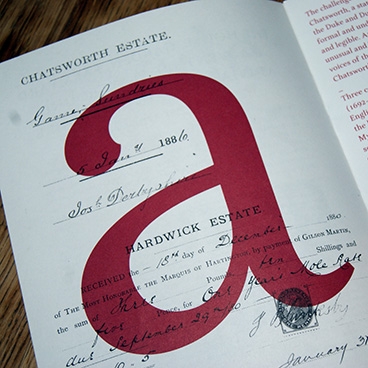 CHATSWORTH ESTATE.
Game Sundries
5 Jany 1886
Jos. Derbyshire
a
HARDWICK ESTATE
18th day of December 1880.
RECEIVED the
of THE MOST HONORABLE THE MARQUIS OF HARTINGTON, by payment of GILSON MARTIN,
the sum of Three Pounds, ten Shillings and
Pence, for One Year's Mole Rate
due September 29th
January
The challeng
Chatsworth, a sta
the Duke and D
formal and un
and legible. A
unusual and
voices of th
Chatswort
Three c
(1692-
Englis
the
My
s